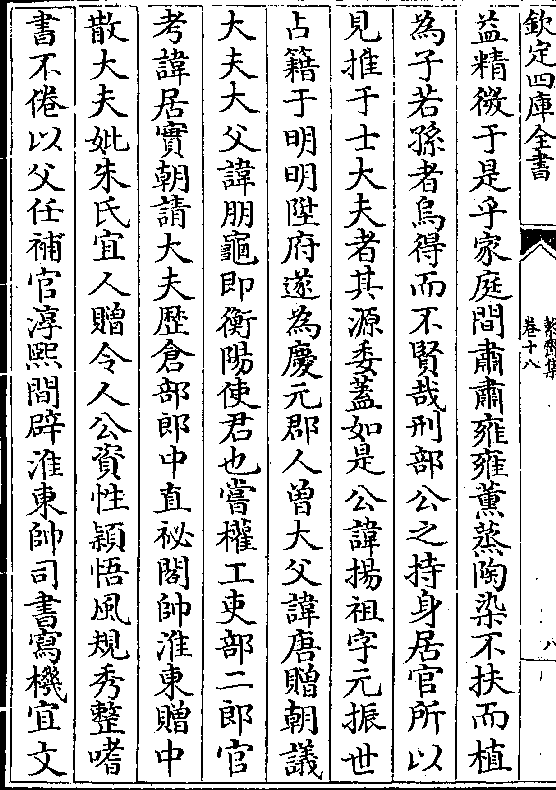 欽定四庫全書
絜齋集
卷十八
八
益精微于是乎家庭間肅肅雍雍薰蒸陶染不扶而植
為子若孫者烏得而不賢哉刑部公之持身居官所以
見推于士大夫者其源委蓋如是公諱揚祖字元振世
占籍于明明陞府遂為慶元郡人曾大父諱唐贈朝議
大夫大父諱朋龜即衡陽使君也嘗權工吏部二郎官
考諱居實朝請大夫歷倉部郎中直祕閣帥淮東贈中
散大夫妣朱氏宜人贈令人公資性穎悟風規秀整嗜
書不倦以父任補官淳熙間辟淮東帥司書寫機宜文